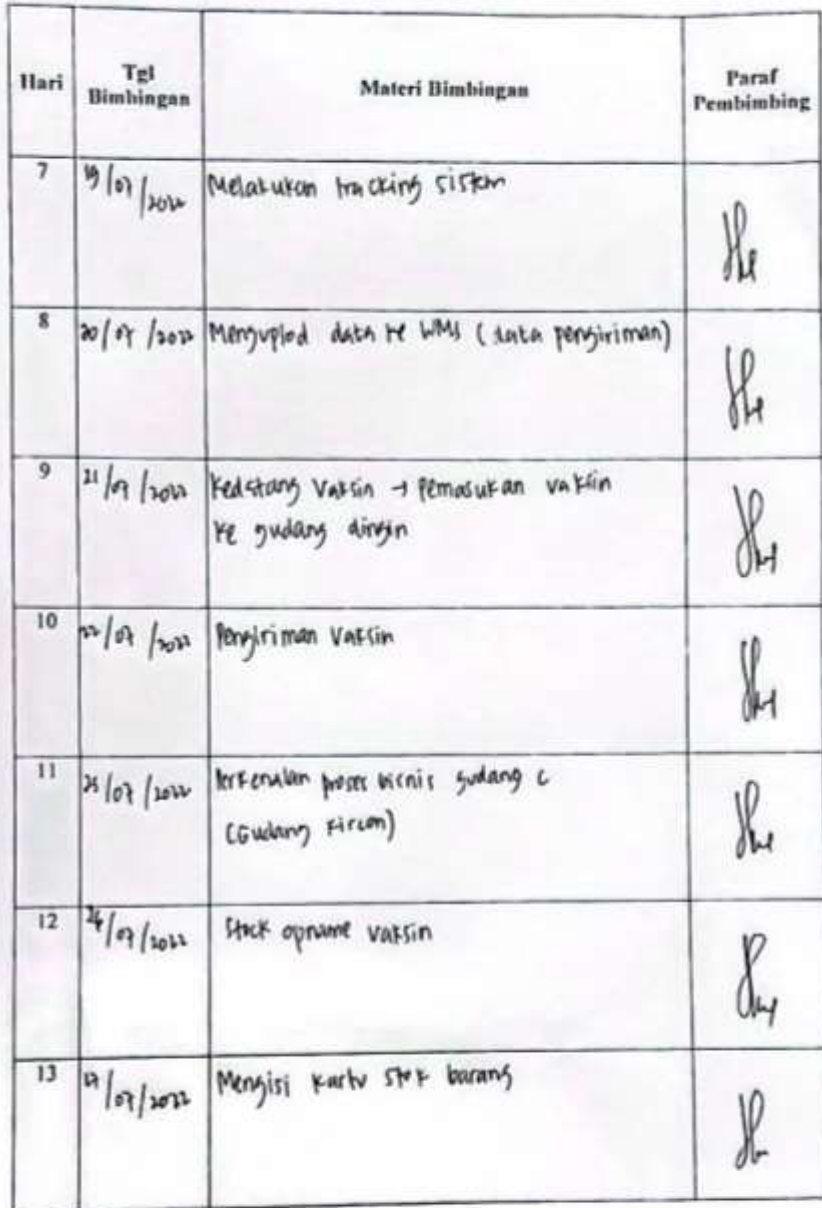 Hari
Tgl
Bimbingan
Materi Bimbingan
Paraf
Pembimbing
7
19/07/2022
Melakukan tracking sistem
8
20/07/2022
Menguplod data ke WMS (data pengiriman)
9
21/07/2022
Kedatang Vaksin → Pemasukan vaksin
ke gudang dingin
10
22/07/2022
Pengiriman Vaksin
11
25/07/2022
Perkenalan proses bisnis gudang C
(Gudang Kircon)
12
/07/2022
Stock opname vaksin
13
27/07/2022
Mengisi kartu stok barang